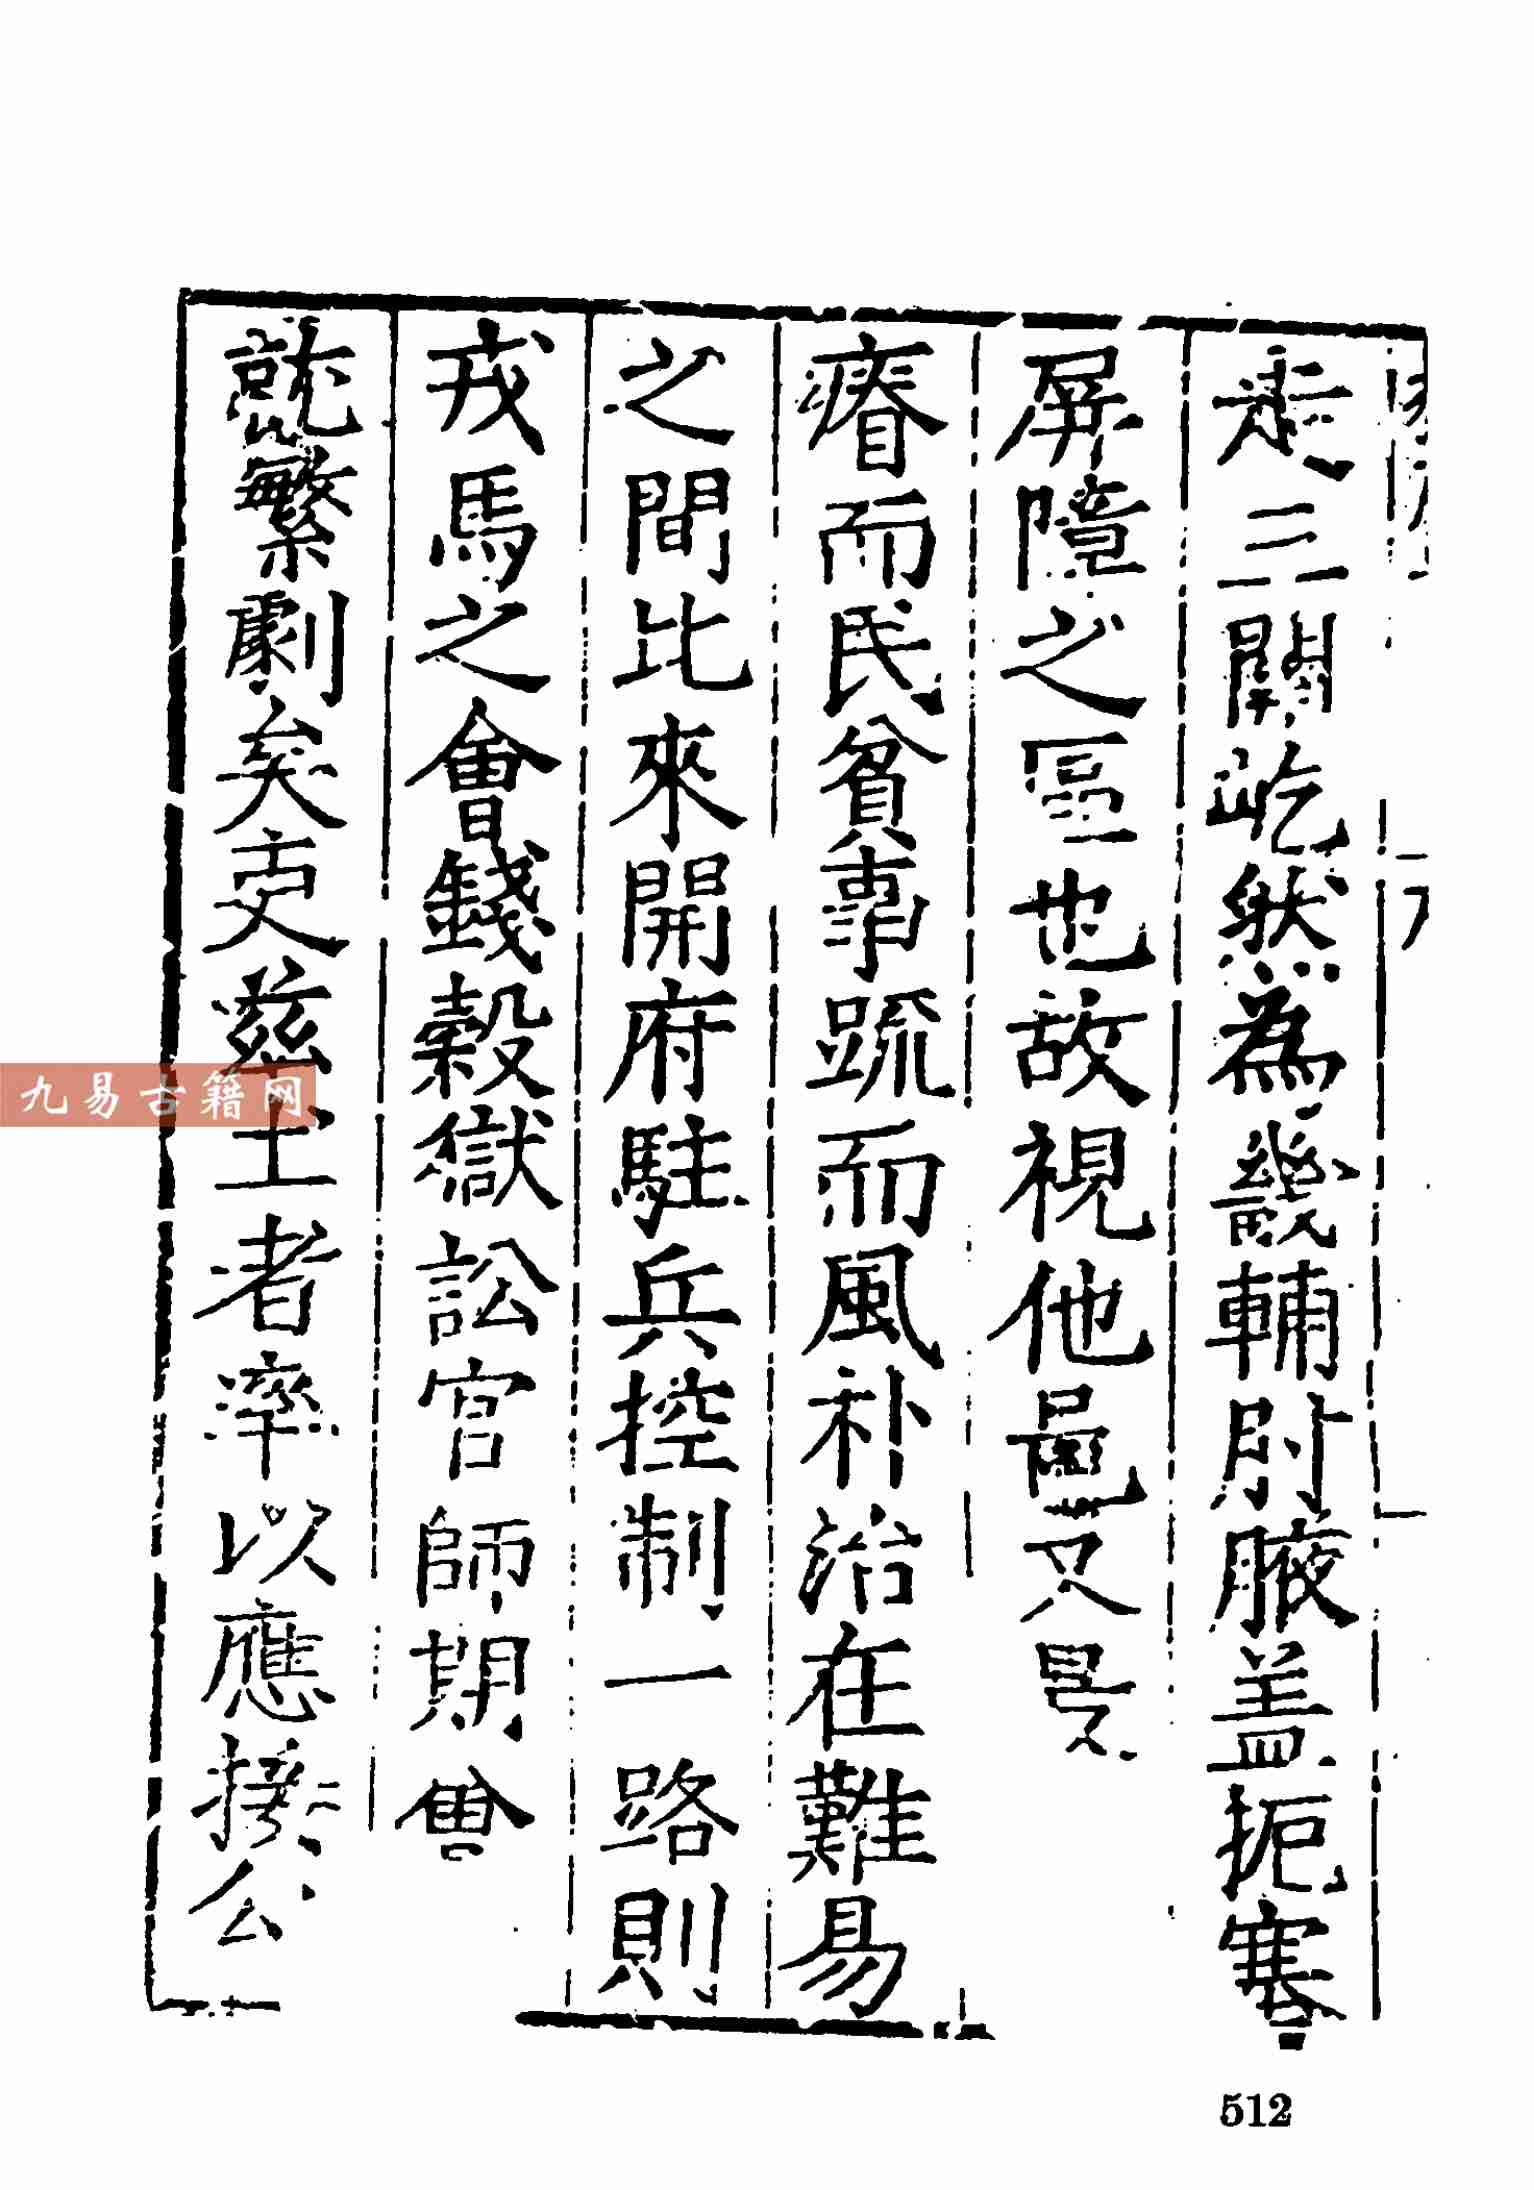 走三關屹然為畿輔肘腋盖扼塞
屏障之區也故視他邑又是
瘠而民貧事疏而風朴治在難易
之間比來開府駐兵控制一路則
戎馬之會錢穀獄訟官師期會
就繁劇矣吏兹土者率以應接公
九易古籍网
512